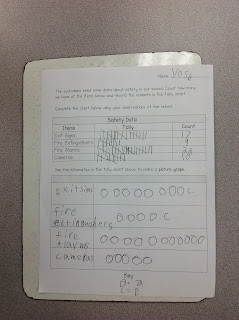 Name Yosg
The customers need some data about safety in our school. Count how many
we have of the items below and record the numbers in the tally chart.
Complete the chart below using your observations of the school.
Safety Data
Items Tally Count
Exit Signs 17
Fire Extinguishers 9
Fire Alarms
Cameras 10
Use the information in the tally chart above to make a picture graph.
exitsins
fire
fire
alarms
cameras
Key